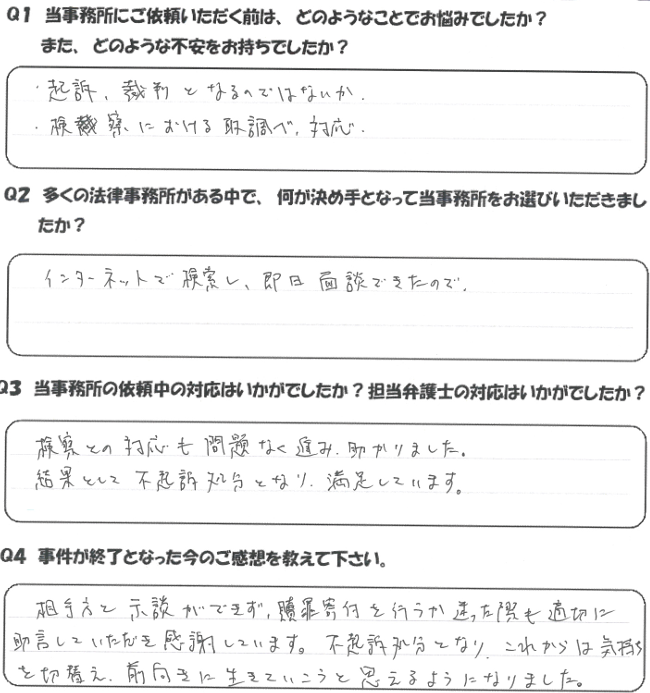 Q1 当事務所にご依頼いただく前は、どのようなことでお悩みでしたか？
また、どのような不安をお持ちでしたか？
・起訴、裁判となるのではないか.
・検察における取調べ、対応.
Q2 多くの法律事務所がある中で、何が決め手となって当事務所をお選びいただきまし
たか？
インターネットで検索し、即日面談できたので.
Q3 当事務所の依頼中の対応はいかがでしたか？担当弁護士の対応はいかがでしたか？
検察との対応も問題なく進み、助かりました。
結果として不起訴処分となり、満足しています。
Q4 事件が終了となった今のご感想を教えて下さい。
相手方と示談ができず、贖罪寄付を行うか迷った際も適切に
助言していただき感謝しています。不起訴処分となり、これからは気持ち
を切替え、前向きに生きていこうと思えるようになりました。